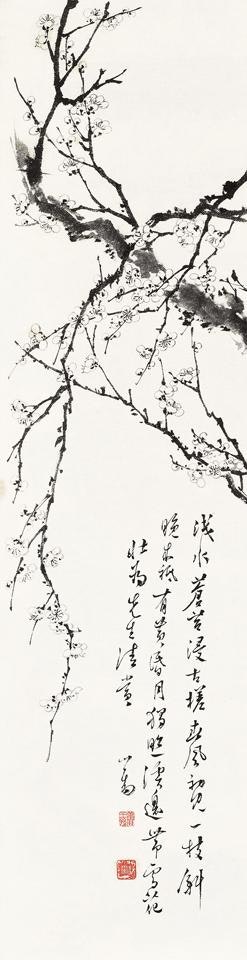 浅水蒼苔浸古槎春風初見一枝斜
晚来祇有黄昏月獨照溪邊帶雪花
壯為先生清賞
心畬